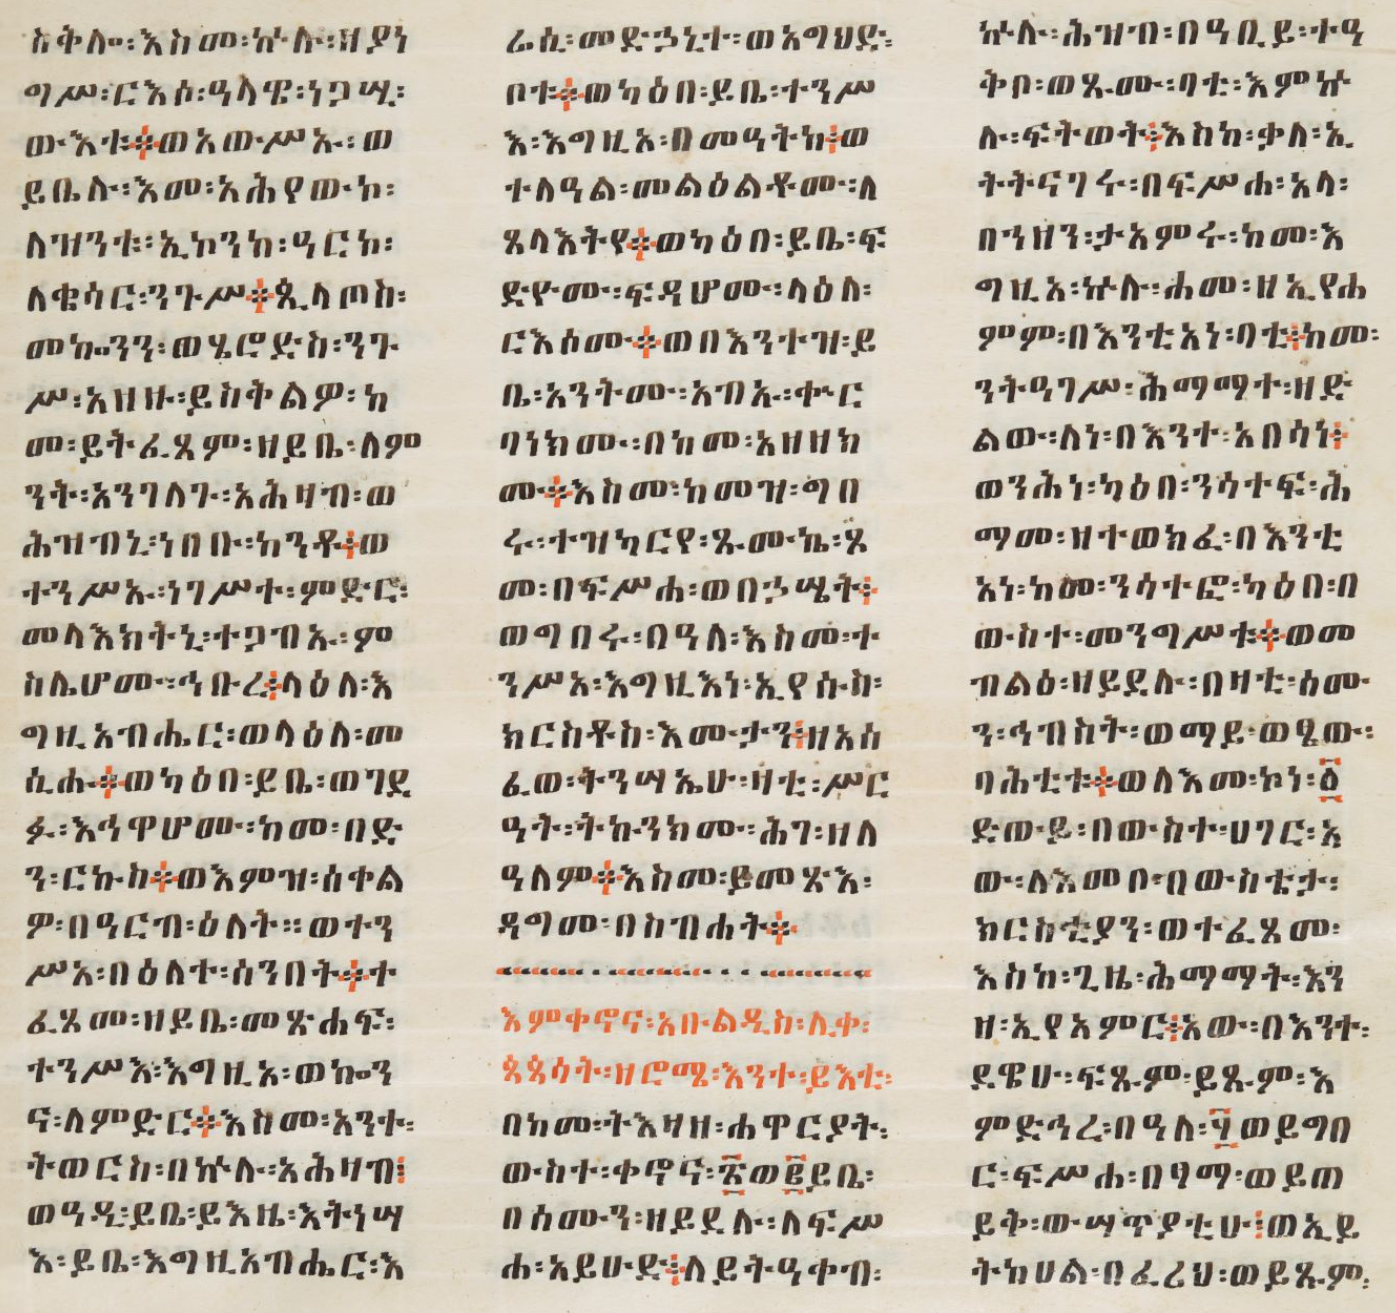 ስቅሎ፡እስመ፡ኵሉ፡ዘያነ
ግሥ፡ርእሶ፡ዓላዊ፡ነጋሢ፡
ውእቱ፨ወአውሥኡ፡ወ
ይቤሉ፡እመ፡አሕየውኮ፡
ለዝንቱ፡ኢኮንከ፡ዓርኮ፡
ለቄሳር፡ንጉሥ፨ጲላጦስ፡
መኰንን፡ወሄሮድስ፡ንጉ
ሥ፡አዘዙ፡ይስቅልዎ፡ከ
መ፡ይትፈጸም፡ዘይቤ፡ለም
ንት፡አንገለጉ፡አሕዛብ፡ወ
ሕዝብኒ፡ነበቡ፡ከንቶ፨ወ
ተንሥኡ፡ነገሥተ፡ምድር፡
መላእክትኒ፡ተጋብኡ፡ም
ስሌሆሙ፡ኅቡረ፨ላዕለ፡እ
ግዚአብሔር፡ወላዕለ፡መ
ሲሑ፨ወካዕበ፡ይቤ፡ወገደ
ፉ፡እኅዋሆሙ፡ከመ፡በድ
ን፡ርኩስ፨ወእምዝ፡ሰቀል
ዎ፡በዓርብ፡ዕለት።ወተን
ሥአ፡በዕለተ፡ሰንበት፨ተ
ፈጸመ፡ዘይቤ፡መጽሐፍ፡
ተንሥእ፡እግዚኦ፡ወኰን
ና፡ለምድር፨እስመ፡አንተ፡
ትወርስ፡በኵሉ፡አሕዛብ፤
ወዓዲ፡ይቤ፡ይእዜ፡እትነሣ
እ፡ይቤ፡እግዚአብሔር፡እ
ሬሲ፡መድኃኒተ፡ወአግህድ፡
ቦቱ፨ወካዕበ፡ይቤ፡ተንሥ
እ፡እግዚኦ፡በመዓትከ፤ወ
ተለዓል፡መልዕልቶሙ፡ለ
ጸላእትየ፨ወካዕበ፡ይቤ፡ፍ
ድዮሙ፡ፍዳሆሙ፡ላዕለ፡
ርእሰሙ፨ወበእንተዝ፡ይ
ቤ፡አንትሙ፡አብኡ፡ቍር
ባነክሙ፡በከመ፡አዘዘክ
ሙ፨እስመ፡ከመዝ፡ግበ
ሩ፡ተዝካርየ፡ጹሙኬ፡ጾ
መ፡በፍሥሐ፡ወበኃሤት፤
ወግበሩ፡በዓለ፡እስመ፡ተ
ንሥአ፡እግዚእነ፡ኢየሱስ፡
ክርስቶስ፡እሙታን፤ዘአሰ
ፈወ፡ትንሣኤሁ፡ዛቲ፡ሥር
ዓት፡ትኩንክሙ፡ሕገ፡ዘለ
ዓለም፨እስመ፡ይመጽእ፡
ዳግመ፡በስብሐት፨
እምቀኖና፡አቡልዲስ፡ሊቀ፡
ጳጳሳት፡ዘሮሜ፡እንተ፡ይእቲ፡
በከመ፡ትእዛዘ፡ሐዋርያት፡
ውስተ፡ቀኖና፡፳ወ፪ይቤ፡
በሰሙን፡ዘይደሉ፡ለፍሥ
ሐ፡አይሁድ፤ለይትዓቀብ፡
ኵሉ፡ሕዝብ፡በዓቢይ፡ተዓ
ቅቦ፡ወጹሙ፡ባቲ፡እምኵ
ሉ፡ፍትወት፤እስከ፡ቃለ፡ኢ
ትትናገሩ፡በፍሥሐ፡አላ፡
በንዘን፡ታአምሩ፡ከመ፡እ
ግዚአ፡ኵሉ፡ሐመ፡ዘኢየሐ
ምም፡በእንቲአነ፡ባቲ፤ከመ፡
ንትዓገሥ፡ሕማማተ፡ዘድ
ልው፡ለነ፡በእንተ፡አበሳነ፤
ወንሕነ፡ካዕበ፡ንሳተፍ፡ሕ
ማመ፡ዘተወክፈ፡በእንቲ
አነ፡ከመ፡ንሳተፎ፡ካዕበ፡በ
ውስተ፡መንግሥቱ፨ወመ
ብልዕ፡ዘይደሉ፡በዛቲ፡ሰሙ
ን፡ኅብስት፡ወማይ፡ወፄው፡
ባሕቲቱ፨ወለእመ፡ኮነ፡፩
ድውይ፡በውስተ፡ሀገር፡አ
ው፡ለእመቦ፡በውስቴታ፡
ክርስቲያን፡ወተፈጸመ፡
እስከ፡ጊዜ፡ሕማማት፡እን
ዘ፡ኢየአምር፤አው፡በእንተ፡
ደዌሁ፡ፍጹም፡ይጹም፡እ
ምድኅረ፡በዓለ፡፶ወይግበ
ር፡ፍሥሐ፡በፃማ፡ወይጠ
ይቅ፡ውሣጥያቲሁ፤ወኢይ
ትከሀል፡በፈሪህ፡ወይጹም፡